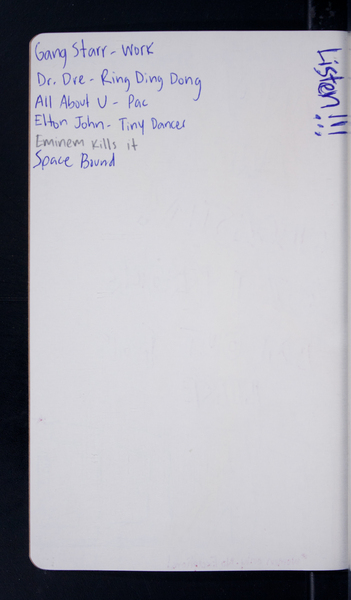 Gang Starr - Work
Dr. Dre - Ring Ding Dong
All About U - Pac
Elton John - Tiny Dancer
Eminem Kills it
Space Bound
Listen!!!